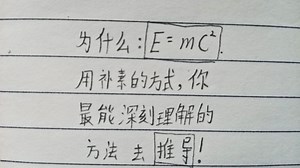 为什么:E=mC².
用朴素的方式,你
最能深刻理解的
方法去推导!